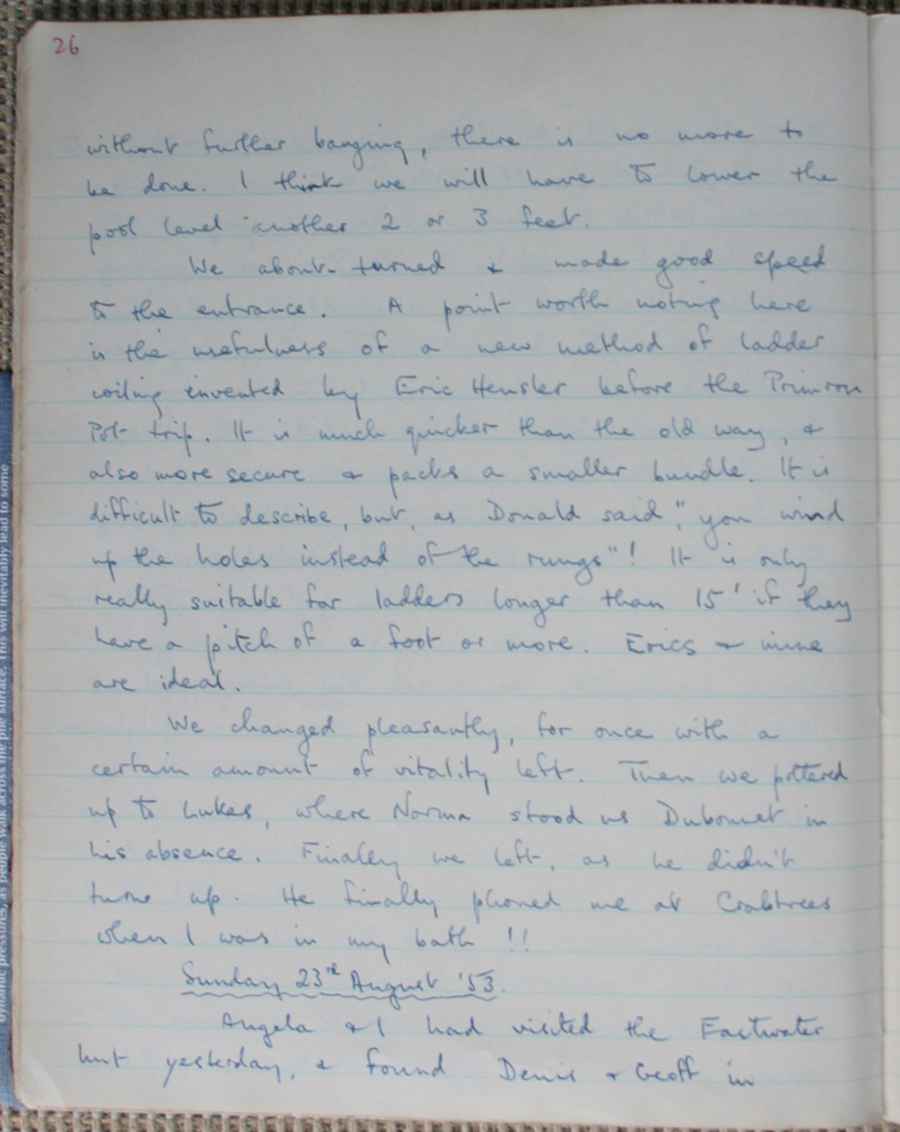 26
without further banging, there is no more to
be done. I think we will have to lower the
pool level another 2 or 3 feet.
We about-turned & made good speed
to the entrance. A point worth noting here
is the usefulness of a new method of ladder
coiling invented by Eric Hensler before the Primrose
Pot trip. It is much quicker than the old way, &
also more secure & packs a smaller bundle. It is
difficult to describe, but, as Donald said, "you wind
up the holes instead of the rungs"! It is only
really suitable for ladders longer than 15' if they
have a pitch of a foot or more. Erics & mine
are ideal.
We changed pleasantly, for once with a
certain amount of vitality left. Then we pottered
up to Lukes, where Norma stood us Dubonnet in
his absence. Finally we left, as he didn't
turn up. He finally phoned me at Crabtrees
when I was in my bath !!
Sunday 23rd August '53.
Angela & I had visited the Eastwater
hut yesterday, & found Denis & Geoff in
organic pressures, as people walk across the pile surface. This will inevitably lead to some